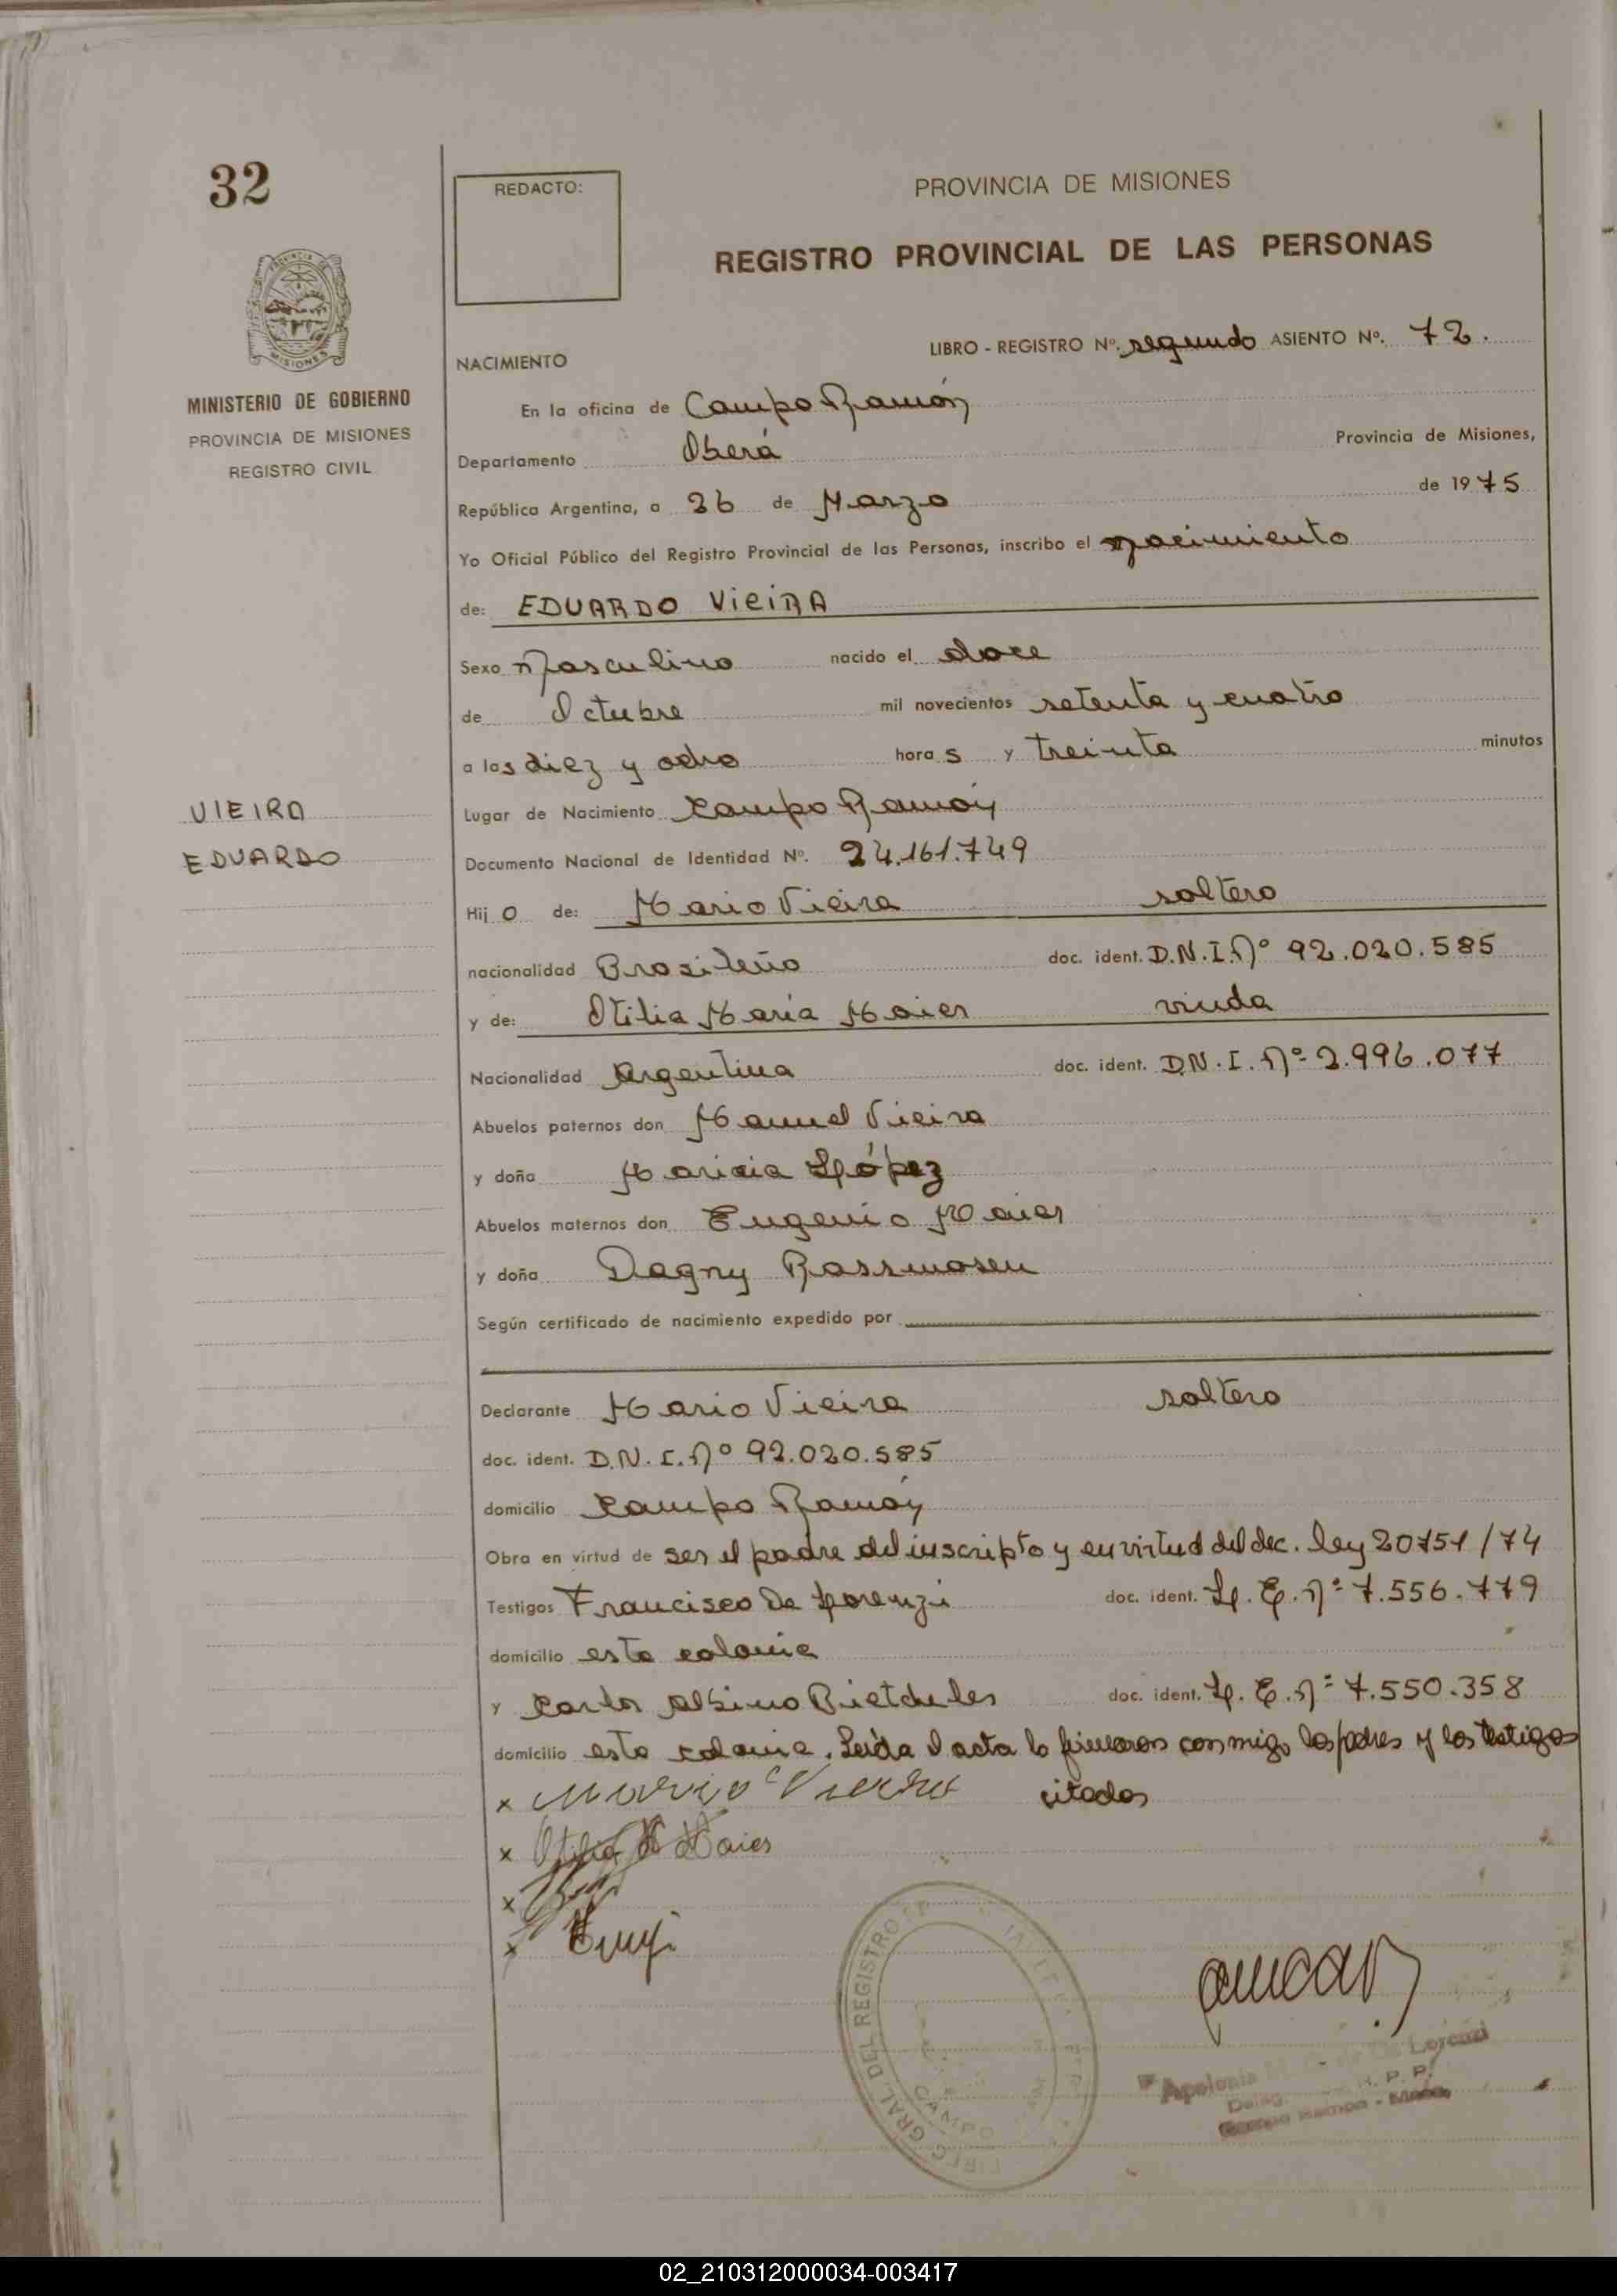 32
REDACTO:
PROVINCIA DE MISIONES
REGISTRO PROVINCIAL DE LAS PERSONAS
MISIONES
MINISTERIO DE GOBIERNO
PROVINCIA DE MISIONES
REGISTRO CIVIL
NACIMIENTO
LIBRO - REGISTRO Nº. segundo ASIENTO Nº. 72.
En la oficina de Campo Ramón
Departamento Oberá Provincia de Misiones,
República Argentina, a 26 de Marzo de 1975
Yo Oficial Público del Registro Provincial de las Personas, inscribo el nacimiento
de: EDUARDO VIEIRA
Sexo Masculino nacido el doce
de Octubre mil novecientos setenta y cuatro
a las diez y ocho horas y treinta minutos
VIEIRA
EDUARDO
Lugar de Nacimiento Campo Ramón
Documento Nacional de Identidad Nº. 24.161.749
Hijo de: Mario Vieira soltero
nacionalidad Brasileño doc. ident. D.N.I.Nº 92.020.585
y de: Otilia María Maier viuda
Nacionalidad Argentina doc. ident. D.N.I. Nº 2.996.077
Abuelos paternos don Manuel Vieira
y doña López
Abuelos maternos don Eugenio Maier
y doña Dagny Rassmosen
Según certificado de nacimiento expedido por
Declarante Mario Vieira soltero
doc. ident. D.N.I.Nº 92.020.585
domicilio Campo Ramón
Obra en virtud de ser el padre del inscripto y en virtud del dec. ley 20751/74
Testigos Francisco De Lorenzi doc. ident. L.E.Nº 7.556.779
domicilio esta colonia
y Carlos Albino doc. ident. L.E.Nº 7.550.358
domicilio esta colonia. Leída el acta lo firmaron conmigo los padres y los testigos
citados
x Mario Vieira
x Otilia M Maier
x
x
DIREC. GRAL. DEL REGISTRO
CAMPO
Apolonia De Lorenzi
R. P. P.
Campo Ramon - Mnes.
02_210312000034-003417